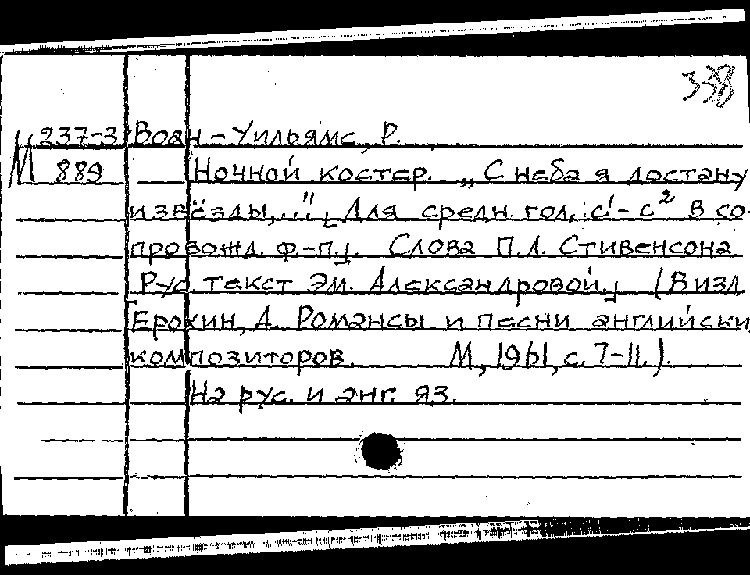 338
М 237-3 Воан-Уильямс, Р.
889 Ночной костер. „С неба я достану
и звёзды,..." [Для средн. гол. c¹-c² в со-
провожд. ф-п.]. Слова П.Л. Стивенсона
Рус. текст Эм. Александровой.] (В изд.
Ерохин, А. Романсы и песни английски
композиторов. М, 1961, с. 7-11.)
На рус. и анг. яз.